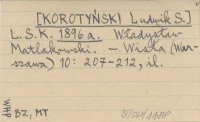 [KOROTYŃSKI Ludwik S.]
L.S.K. 1896 a. Władysław
Matlakowski. – Wisła (War-
szawa) 10: 207-212, il.
WHP BZ, MT